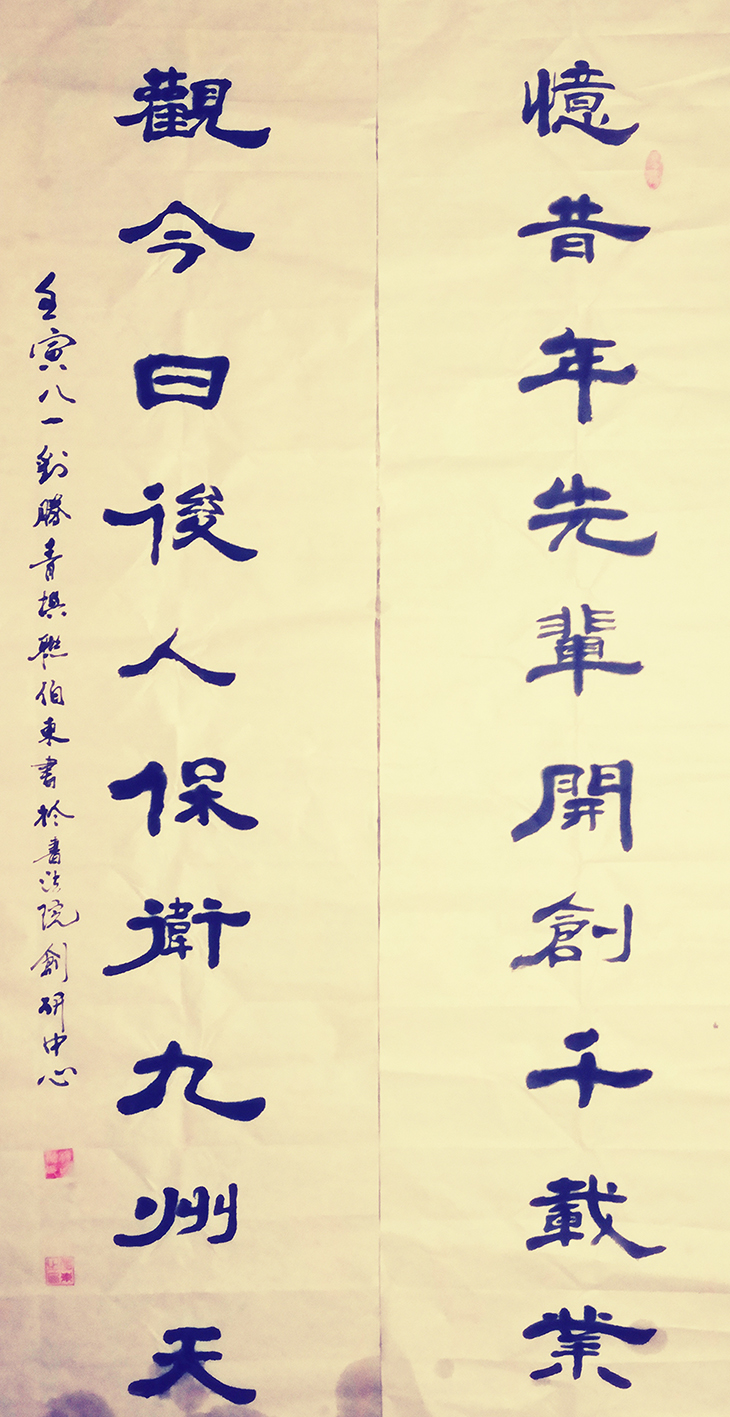 憶昔年先輩開創千載業
觀今日後人保衛九州天
壬寅八一劉勝青撰聯伯東書於書法院創研中心